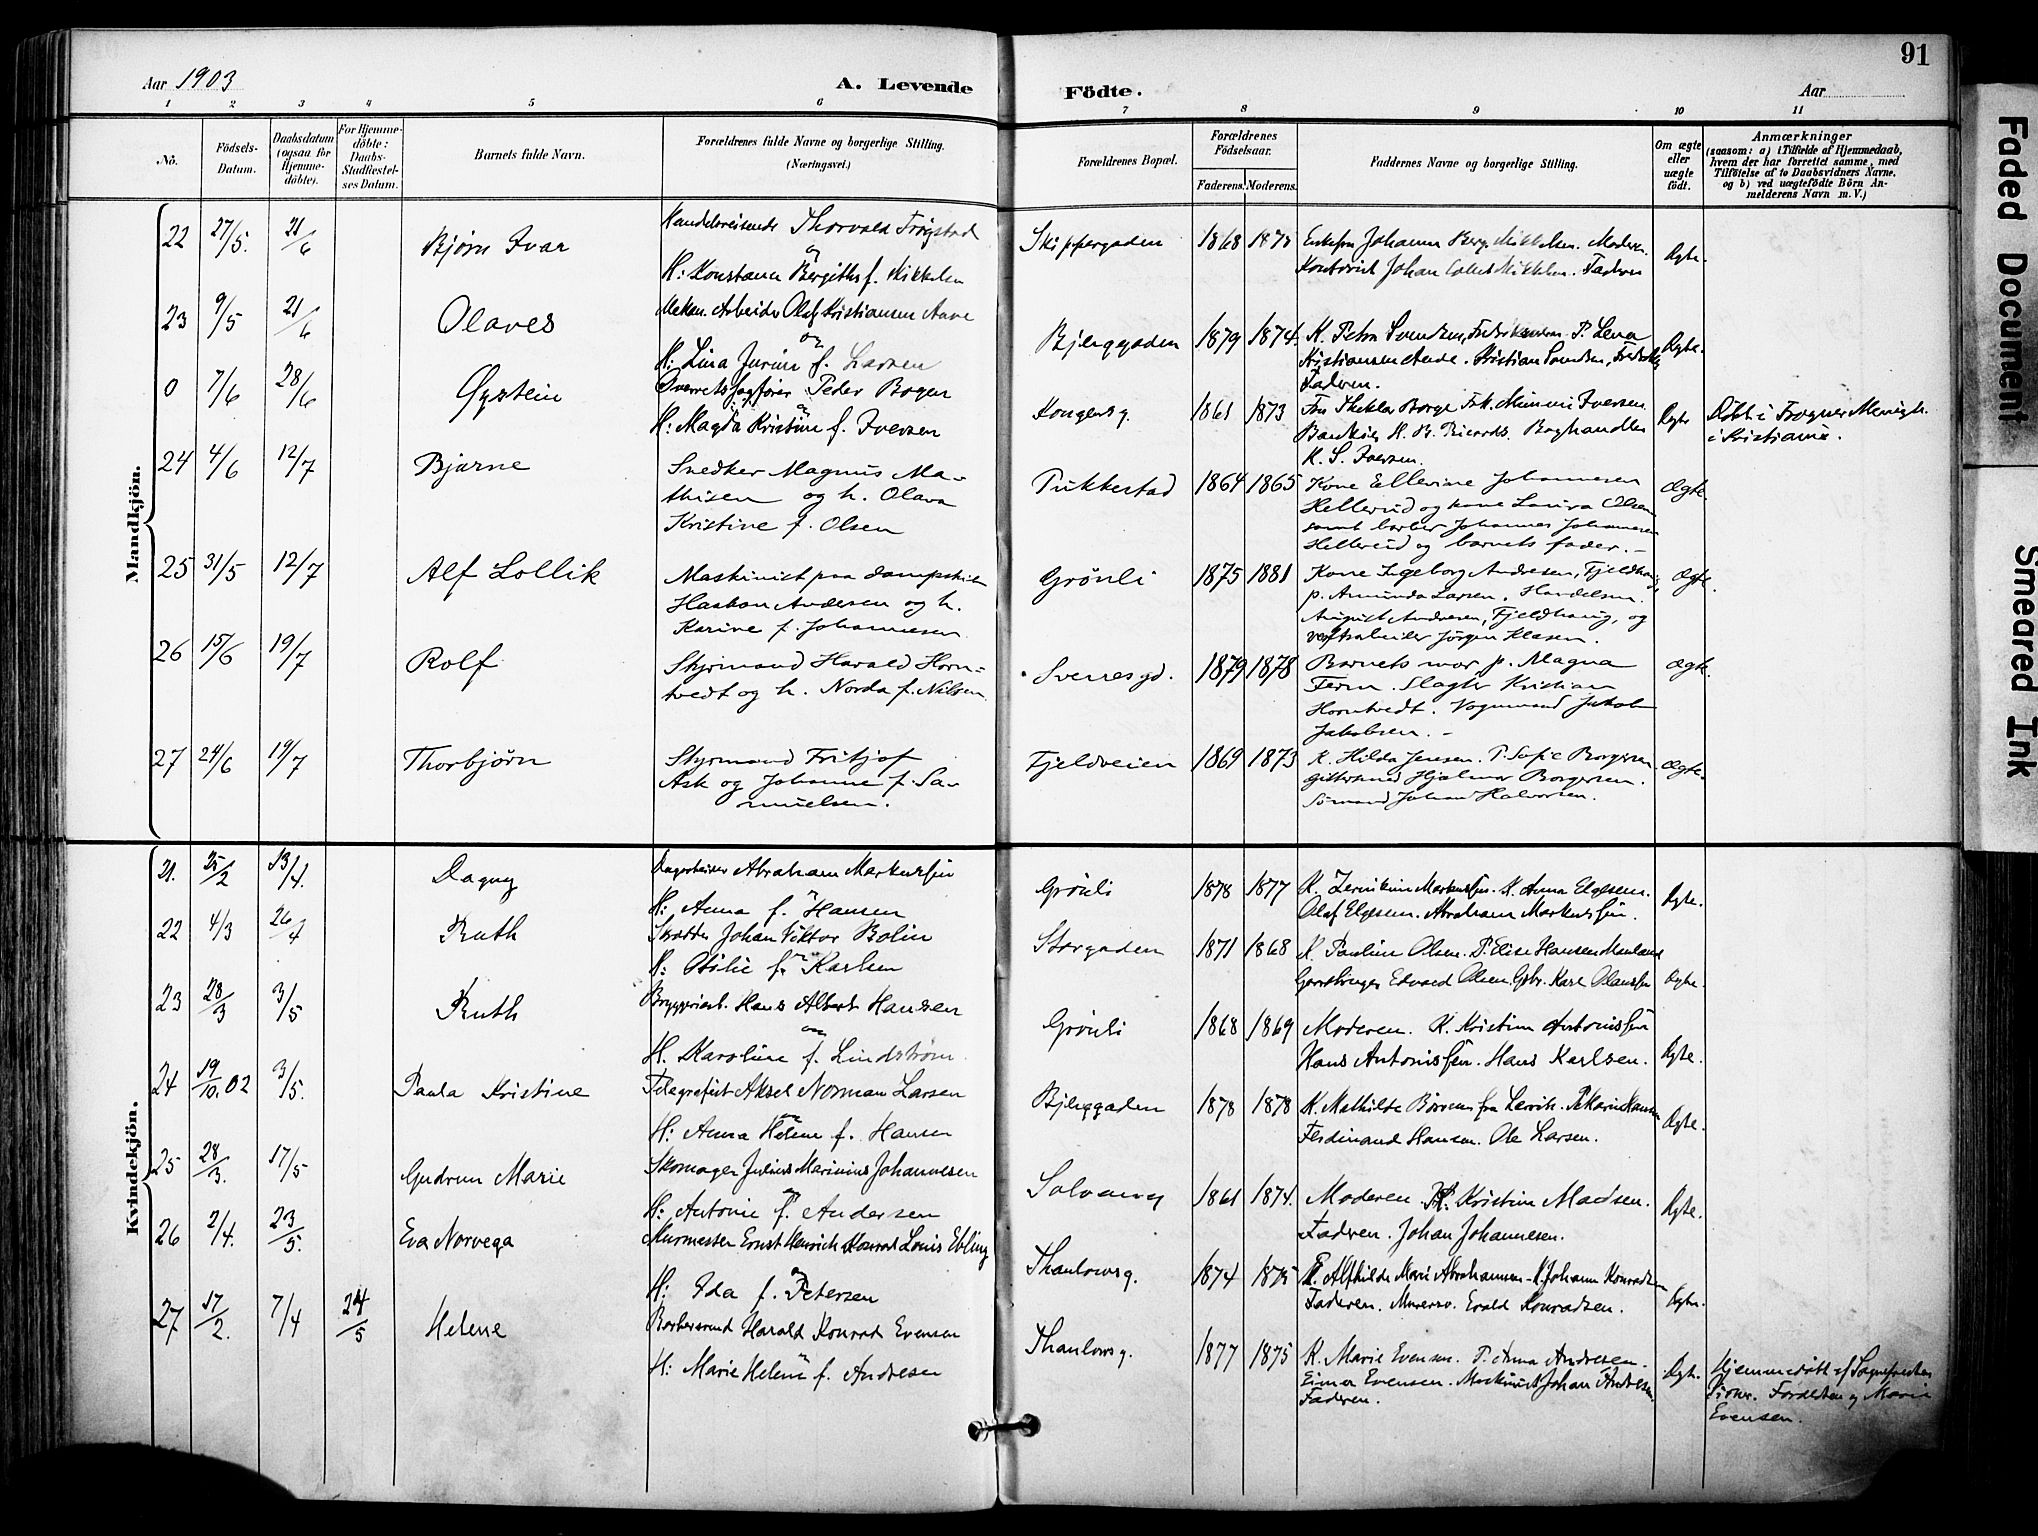 91
Aar 1903
A. Levende Födte.
Aar
1 2 3 4 5 6 7 8 9 10 11
No.
Födsels-Datum.
Daabsdatum (ogsaa for Hjemme-döbte).
For Hjemme-döbte: Daabs-Stadfæstel-ses Datum.
Barnets fulde Navn.
Forældrenes fulde Navne og borgerlige Stilling. (Næringsvei.)
Forældrenes Bopæl.
Forældrenes Födselsaar.
Faderens. Moderens.
Faddernes Navne og borgerlige Stilling.
Om ægte eller uægte födt.
Anmærkninger
(saasom: a) i Tilfælde af Hjemmedaab, hvem der har forrettet samme, med Tilföielse af to Daabsvidners Navne, og b) ved uægtefödte Börn Anmelderens Navn m. V.)
Mandkjön.
22 27/5. 21/6 Bjørn Ivar
Handelsreisende Thorvald Trøgstad
og
H: Konstance Bergithe f. Mikkelsen
Skippergaden 1868
Johanne Berg Mikkelsen. Moderen.
Johan Mikkelsen. Faderen
Ægte.
23 9/5 21/6 Olaves
Mekan. Arbeider Olaf Kristiansen Aave
og
H: Lina f. Larsen
Bjerggaden 1879 1874.
K. Petra Svendsen, P. Lena
Kristiansen
Faderen.
Ægte.
0 7/6 28/6 Øystein
Overretssagfører Peder Bogen
og
H: Magda Kristine f. Iversen
Kongensg. 1861 1873
Fru Thekla Borge Frk. Iversen
Boghandler
K. S. Iversen.
Ægte
Døbt i Frogner Menigh.
i Kristiania.
24 4/6 12/7 Bjarne
Snedker Magnus Ma-
thisen og h. Olava
Kristine f. Olsen
Pukkestad 1864 1865
Kone Ellevine Johannesen
Hellerud og kone Laura Olsen
samt barber Johannes Johannesen
Hellerud og barnets fader. -
Ægte
25 31/5 12/7 Alf Lollik
Maskinist paa dampskib
Haakon Andersen og h.
Karine f. Johannesen
Grönli 1875 1881
Kone Ingeborg Andresen, Fjeldhaug,
p. Amunda Larsen. Handelsm.
August Andresen, Fjeldhaug, og
Jørgen Klasen.
Ægte.
26 15/6 19/7 Rolf
Styrmand Harald Horn-
tvedt og h. Norda f. Nilsen
Sverresgd. 1879 1878
Barnets mor p. Magna
Ferm. Slagter Kristian
Horntvedt. Vognmand Jakob
Jakobsen. -
Ægte.
27 24/6 19/7 Thorbjørn
Styrmand Fritjof
Ask og Johanne f. Sa-
muelsen.
Fjeldveien 1869 1873
K. Hilda Jensen. P. Sofie Borgersen
Hjalmar Borgersen.
Sömand Johan Halvorsen.
Ægte.
Kvindekjön.
21. 25/2 13/4. Dagny
Abraham Markussen
og
H: Anna f. Hansen
Grönli 1878 1877
K. Markussen. K. Anna Elgesem.
Olaf Elgesem. Abraham Markussen.
Ægte.
22 4/3 26/4 Ruth
Skrædder Johan Viktor Bolin
og
H: Otilie f. Karlsen
Storgaden 1871 1868
K. Pauline Olsen. P. Elise Hansen
Edvard Olsen. Karl
Ægte.
23 28/3 3/5 Ruth
Bryggeriarb. Hans Albert Hansen
og
H. Karoline f. Lindstrøm
Grönli 1868 1869
Moderen. K. Kristine Antonissen
Hans Antonissen. Hans Karlsen.
Ægte.
24 19/10.02 3/5. Paula Kristine
Telegrafist Aksel Norman Larsen
og
H: Anna Helene f. Hansen
Bjerggaden 1878 1878
K. Mathilde fra Larvik. P. Marie Hansen
Ferdinand Hansen. Ole Larsen.
Ægte.
25 28/3. 17/5 Gudrun Marie
Skomager Julius Marinius Johannesen
og
H: Antonie f. Andersen
Solvang 1861 1874.
Moderen. K. Kristine Madsen.
Faderen. Johan Johannesen.
Ægte.
26 2/4. 23/5. Eva Norvega
Murmester Ernst Henrich Konrad Louis Ebling
og
H: Ida f. Petersen
Thaulowsg. 1874 1875
P. Alfhilde Marie Abrahamsen. K. Johanne Konradsen
Faderen. Murersv. Evald Konradsen.
Ægte.
27 17/2. 7/4 24/5 Helene
Barbersvend Harald Konrad Evensen
og
H: Marie Helene f. Andresen
Thaulowsg. 1877 1875
K. Marie Evensen. P. Anna Andresen.
Einar Evensen. Maskinist Johan Andresen
Faderen.
Ægte.
Hjemmedøbt af Sognepresten
Forældrene og Marie
Evensen.
Faded Document
Smeared Ink